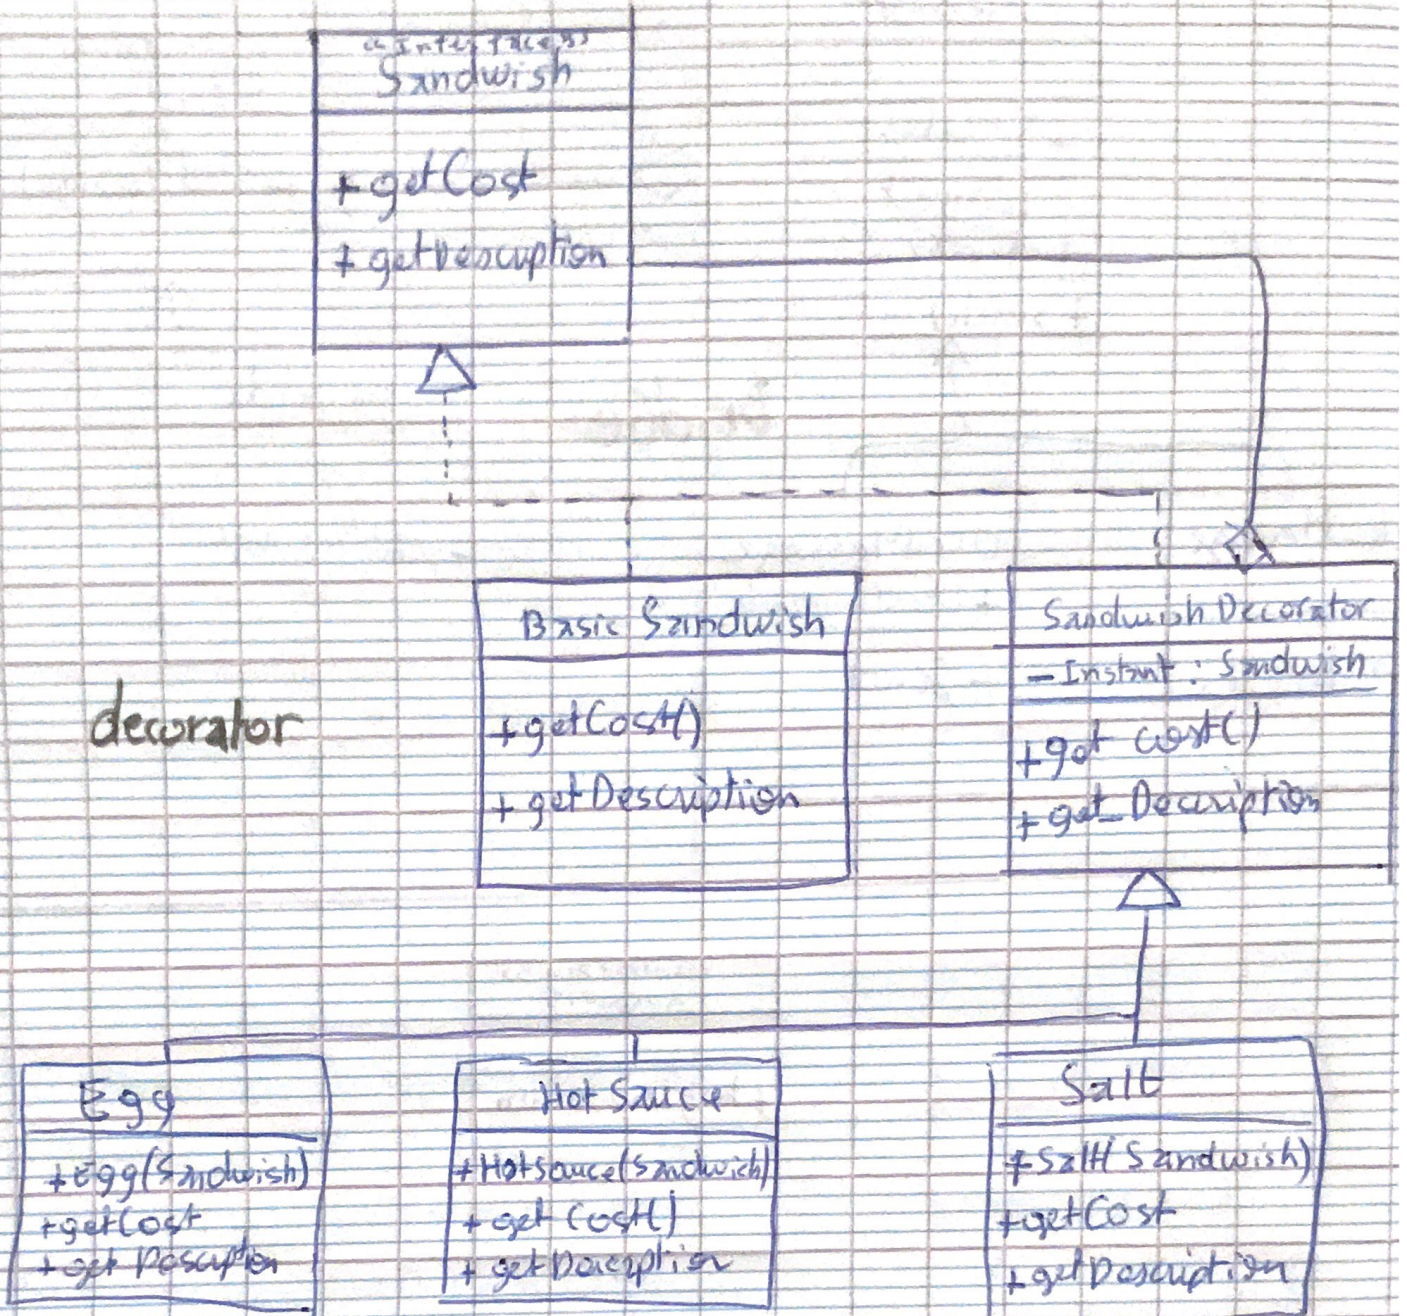 «Interface»
Sandwish
+ getCost
+ getDescription
Basic Sandwish
+ getCost()
+ getDescription
Sandwish Decorator
- Instant : Sandwish
+ get cost()
+ get_Description
decorator
Egg
+ Egg(Sandwish)
+ getCost
+ get Description
Hot Sauce
+ HotSauce(Sandwish)
+ get Cost()
+ getDescription
Salt
+ Salt(Sandwish)
+ getCost
+ getDescription